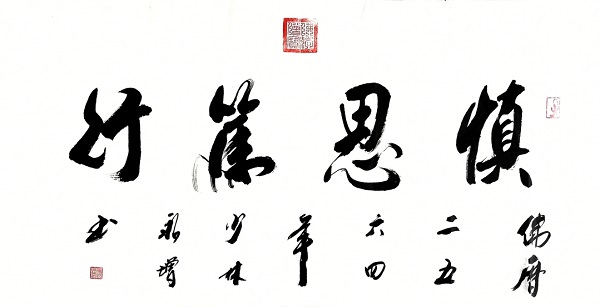 慎思篤行
佛曆二五六四年少林永增书